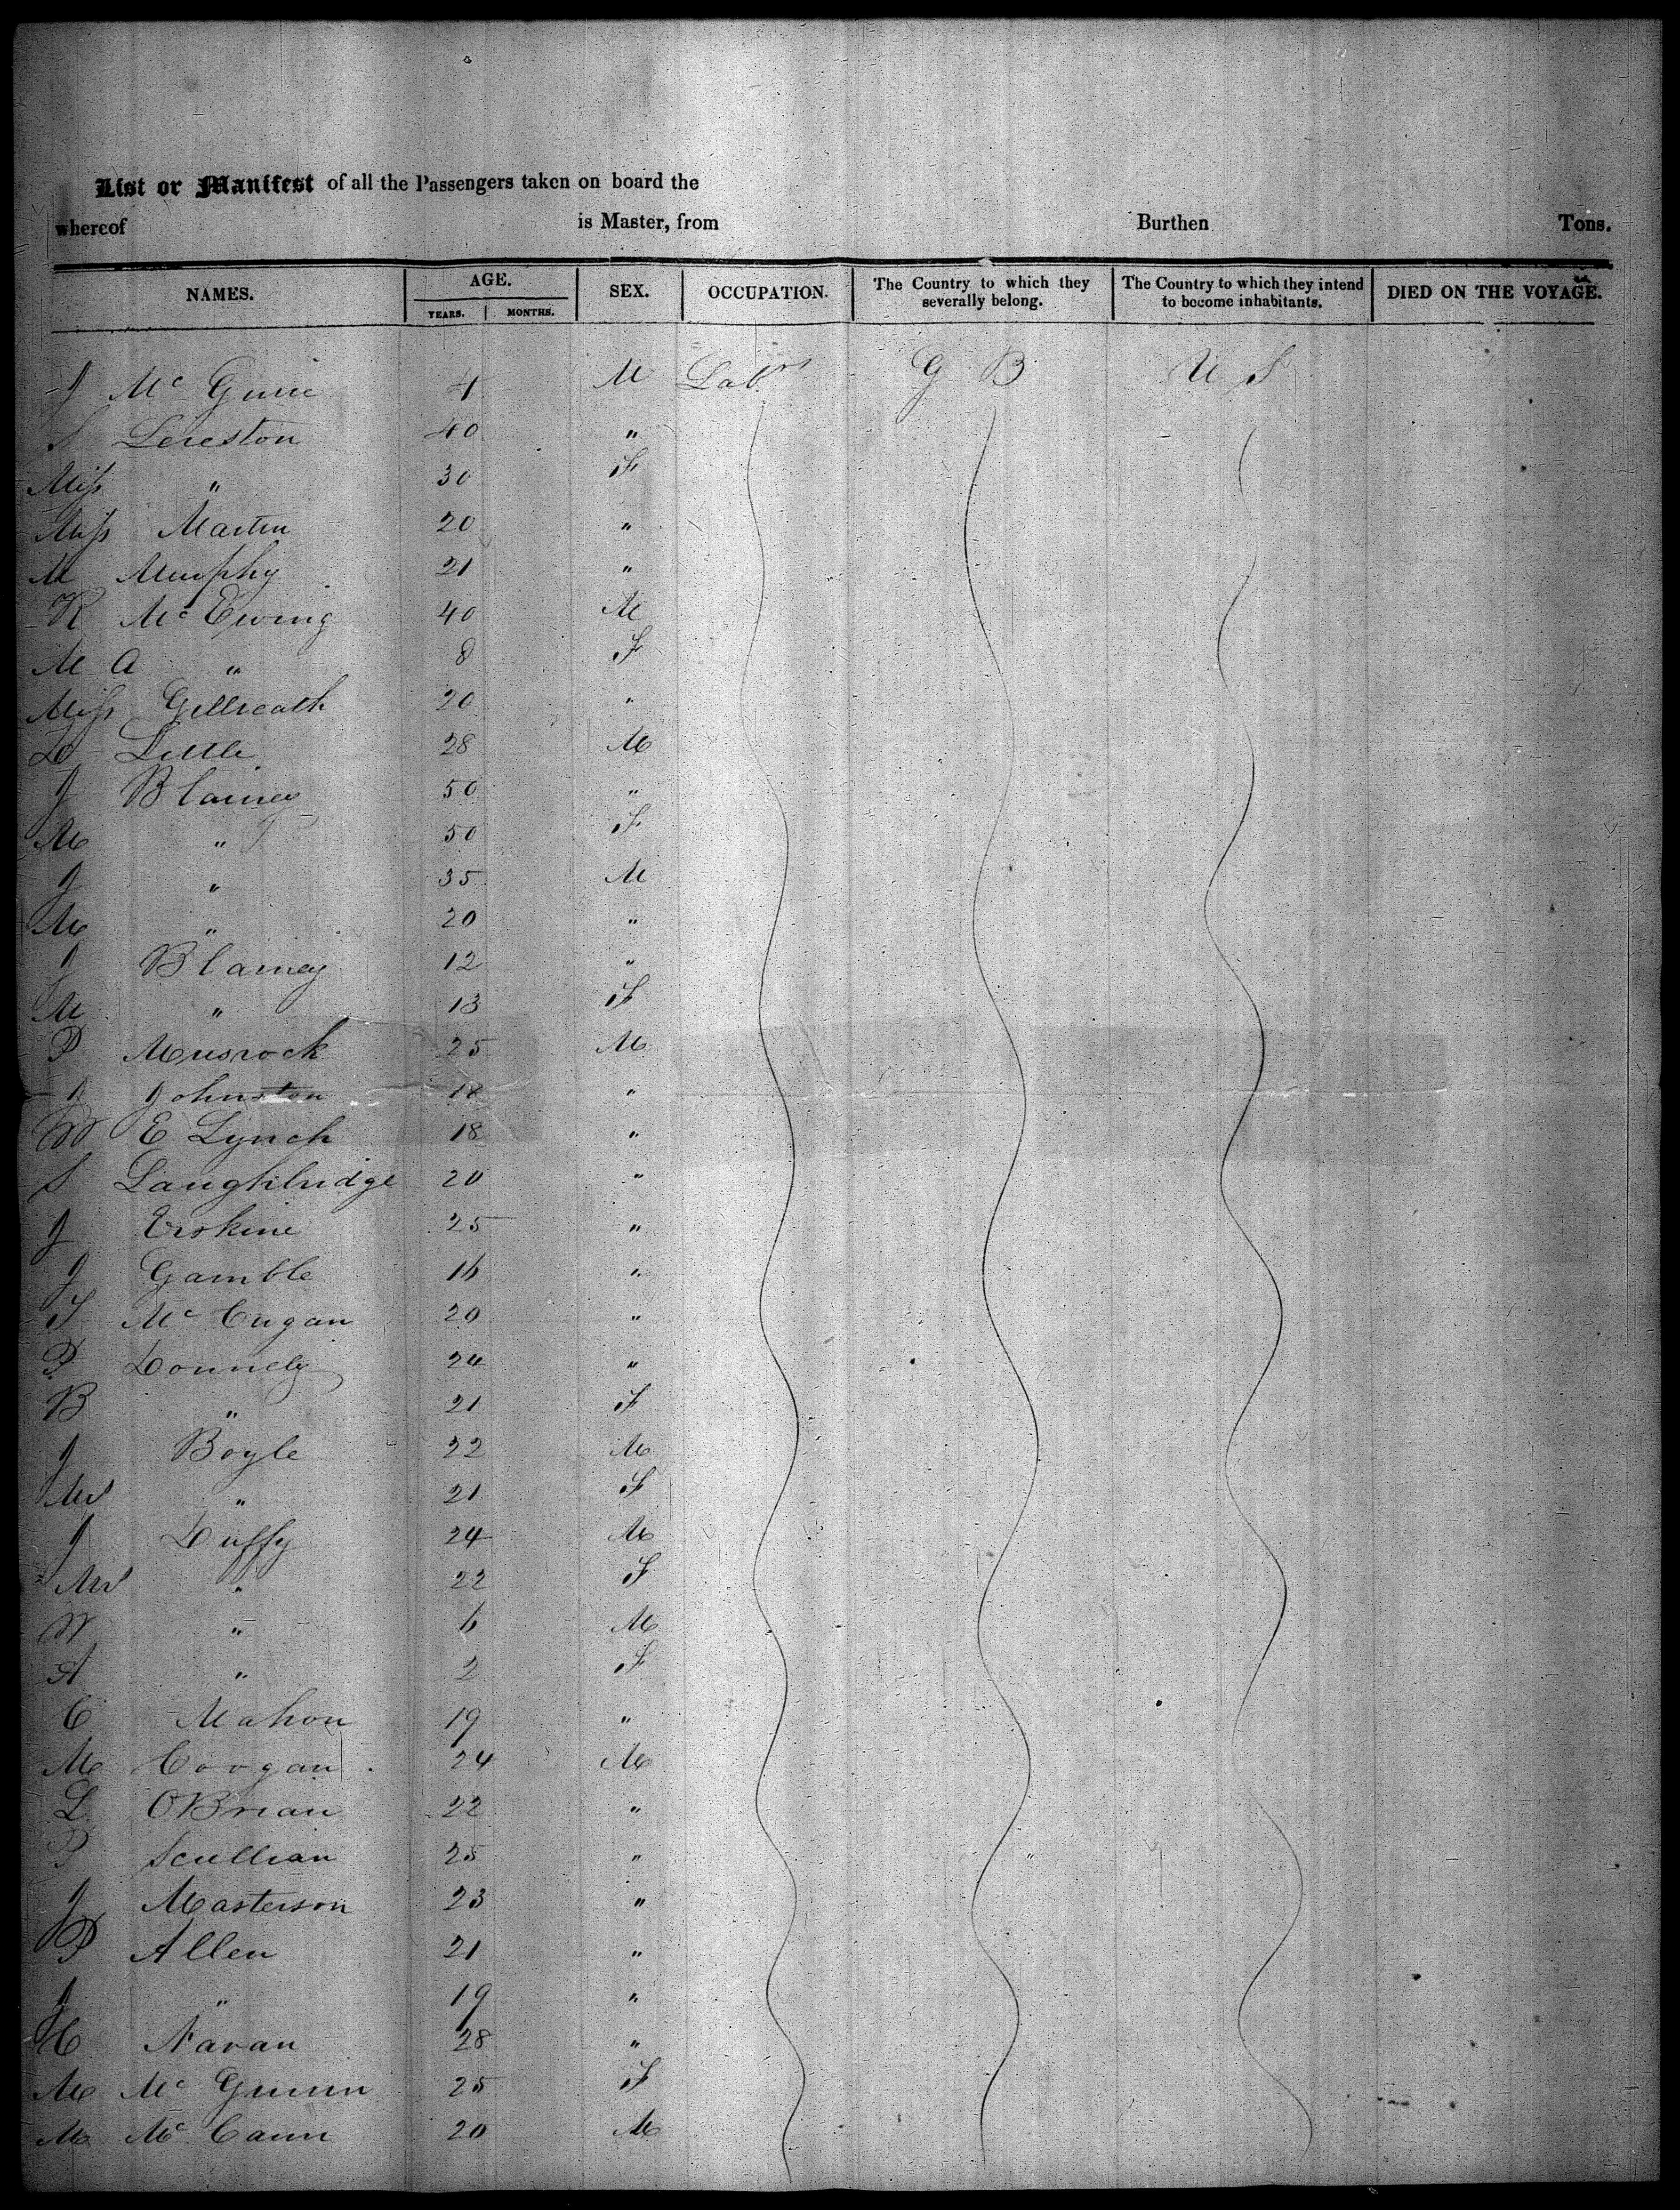 List or Manifest of all the Passengers taken on board the
whereof is Master, from Burthen Tons.
NAMES. AGE. SEX. OCCUPATION. The Country to which they severally belong. The Country to which they intend to become inhabitants. DIED ON THE VOYAGE.
YEARS. MONTHS.
J Mc Guire 4 M Labr G B U S
S Lereston 40 "
Miss " 30 F
Miss Martin 20 "
M Murphy 21 "
R Mc Ewing 40 M
M A " 8 F
Miss Gillreath 20 "
D Little 28 M
J Blainey 50 "
M " 50 F
J " 35 M
M " 20 "
J Blainey 12 "
M " 13 F
P Musrock 25 M
J Johnston 18 "
W E Lynch 18 "
S Laughlridge 20 "
J Erskine 25 "
J Gamble 16 "
T Mc Cugan 20 "
P Donnely 24 "
B " 21 F
J Boyle 22 M
Mrs " 21 F
J Duffy 24 M
Mrs " 22 F
W " 6 M
A " 2 F
C Mahon 19 "
M Coogan 24 M
L OBrian 22 "
P Scullian 25 "
J Masterson 23 "
P Allen 21 "
J " 19 "
C Navan 28 "
M Mc Guinn 25 F
M Mc Cann 20 M